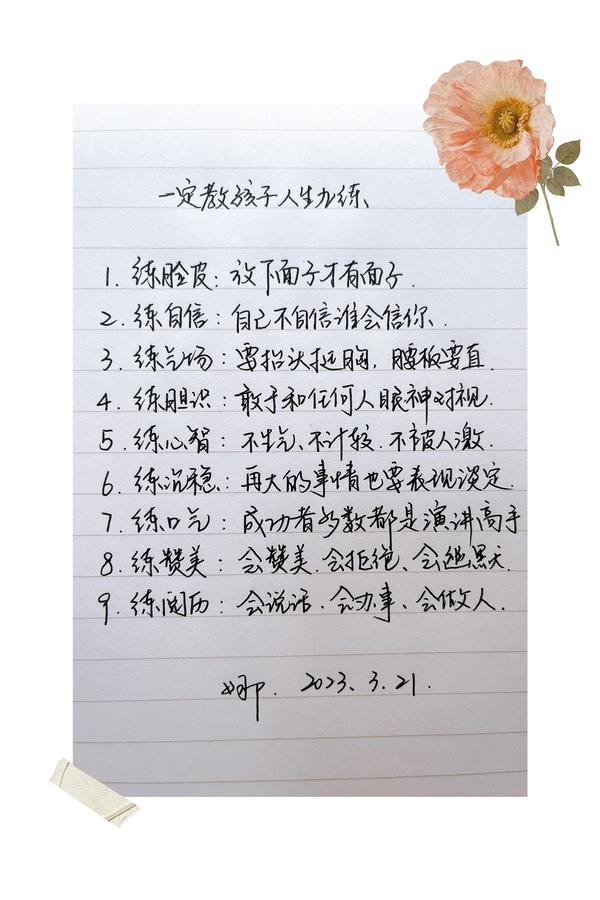 一定教孩子人生九练、
1. 练脸皮：放下面子才有面子.
2. 练自信：自己不自信谁会信你、
3. 练气场：要抬头挺胸，腰板要直.
4. 练胆识：敢于和任何人眼神对视.
5. 练心智：不生气、不计较.不被人激.
6. 练沉稳：再大的事情也要表现淡定.
7. 练口气：成功者多数都是演讲高手
8. 练赞美：会赞美.会拒绝、会幽默.
9. 练阅历：会说话.会办事、会做人.
娜. 2023.3.21.